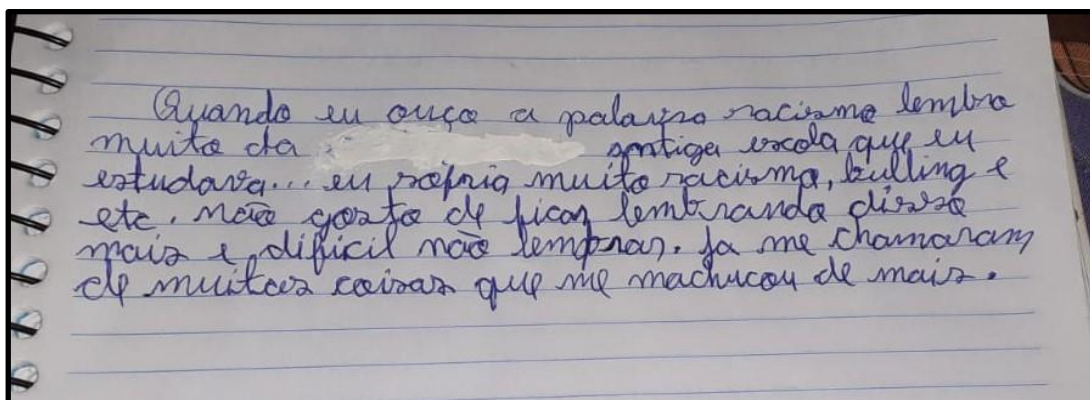 Quando eu ouço a palavra racismo lembro
muito da antiga escola que eu
estudava... eu sofria muito racismo, bulling e
etc. não gosto de ficar lembrando disso
mais e dificil não lembrar. ja me chamaram
de muitas coisas que me machucou de mais.